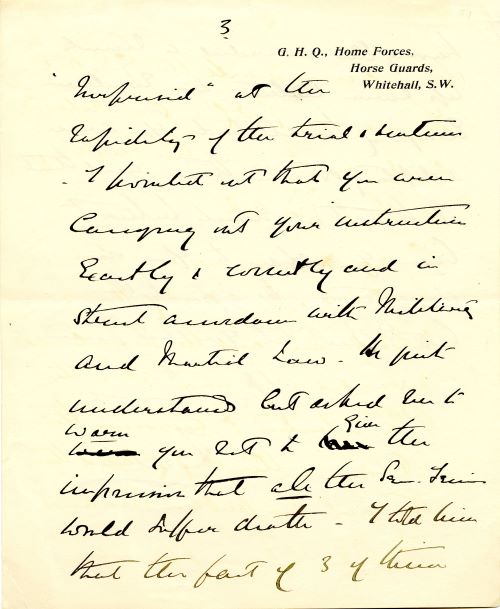 3
G. H. Q., Home Forces,
Horse Guards,
Whitehall, S.W.
"surprised" at the
rapidity of the trial & sentences
- I pointed out that you were
carrying out your instructions
exactly & correctly and in
strict accordance with Military
and Martial Law - He quite
understands but asked me to
warn
you not to give the
impression that all the Sinn Feiners
would suffer death - I told him
that the fact of 3 of them